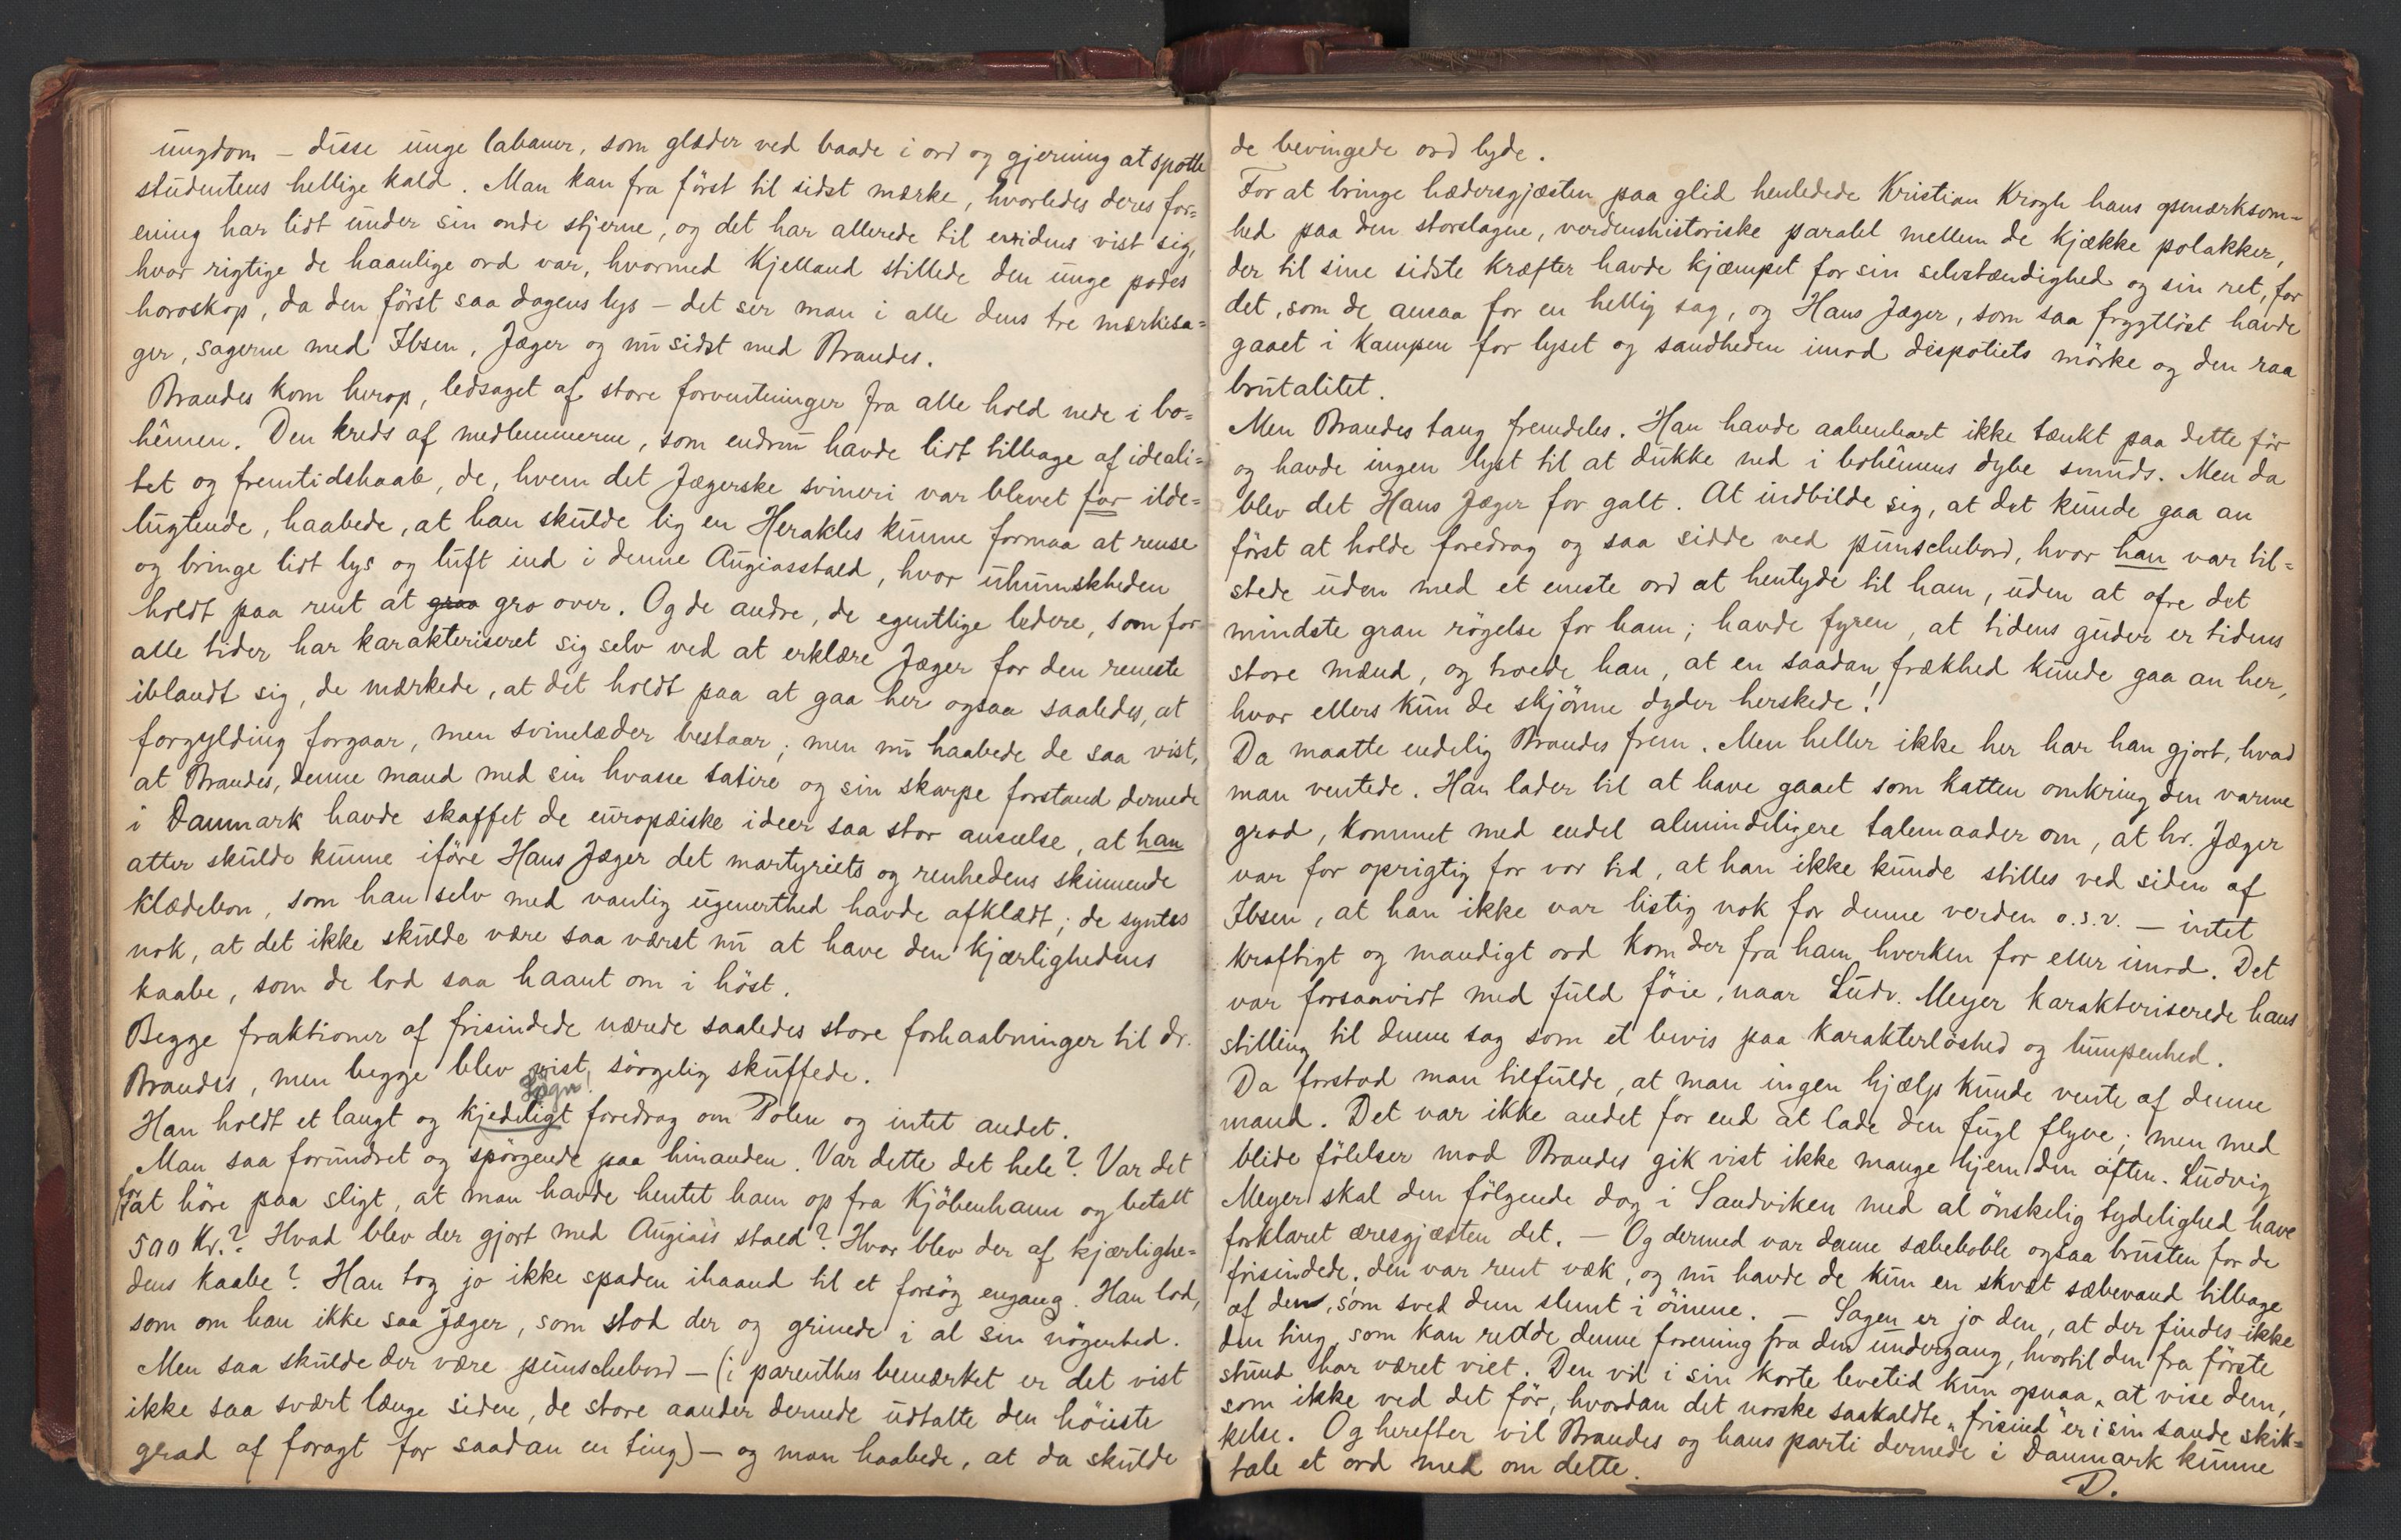 ungdom – disse unge labaner, som glæder ved baade i ord og gjerning at spotte
studentens hellige kald. Man kan fra först til sidst mærke, hvorledes deres for=
ening har lidt under sin onde stjerne, og det har allerede til evidens vist sig,
hvor rigtige de haanlige ord var, hvormed Kjelland stillede den unge podes
horoskop, da den först saa dagens lys – det ser man i alle dens tre mærkesa=
ger, sagerne med Ibsen, Jæger og nu sidst med Brandes.
Brandes kom herop, ledsaget af store forventninger fra alle hold nede i bo=
hêmen. Den kreds af medlemmerne, som endnu havde lidt tilbage af ideali=
tet og fremtidshaab, de, hvem det Jægerske svineri var blevet for ilde=
lugtende, haabede, at han skulde lig en Herakles kunne formaa at rense
og bringe lidt lys og luft ind i denne Augiasstald, hvor uhumskheden
holdt paa rent at groa gro over. Og de andre, de egentlige ledere, som for
alle tider har karakteriseret sig selv ved at erklære Jæger for den reneste
iblandt sig, de mærkede, at det holdt paa at gaa her ogsaa saaledes, at
forgylding forgaar, men svinelæder bestaar; men nu haabede de saa vist,
at Brandes, denne mand med sin hvasse satire og sin skarpe forstand dernede
i Danmark havde skaffet de europæiske ideer saa stor anseelse, at han
atter skulde kunne iføre Hans Jæger det martyriets og renhedens skinnende
klædebon, som han selv med vanlig ugenerthed havde afklædt; de syntes
nok, at det ikke skulde være saa værst nu at have den kjærlighedens
kaabe, som de lod saa haant om i höst.
Begge fraktioner af frisindede nærede saaledes store forhaabninger til dr.
Brandes, men begge blev vist sörgelig skuffede.
Lögn!
Han holdt et langt og kjedeligt foredrag om Polen og intet andet.
Man saa forundret og spörgende paa hinanden. Var dette det hele? Var det
for at höre paa sligt, at man havde hentet ham op fra Kjöbenhavn og betalt
500 Kr.? Hvad blev der gjort med Augias's stald? Hvor blev der af kjærlighe=
dens kaabe? Han tog jo ikke spaden ihaand til et forsög engang. Han lod,
som om han ikke saa Jæger, som stod der og grinede i al sin nögenhed.
Men saa skulde der være punschebord – (i parenthes bemærket er det vist
ikke saa svært længe siden, de store aander dernede udtalte den höieste
grad af foragt for saadan en ting) – og man haabede, at da skulde
de bevingede ord lyde.
For at bringe hædersgjæsten paa glid henledede Kristian Krogh hans opmærksom=
hed paa den storslagne, verdenshistoriske paralel mellem de kjække polakker,
der til sine sidste kræfter havde kjæmpet for sin selvstændighed og sin ret, for
det, som de ansaa for en hellig sag, og Hans Jæger, som saa frygtlöst havde
gaaet i kampen for lyset og sandheden imod despotiets mörke og den raa
brutalitet.
Men Brandes taug fremdeles. Han havde aabenbart ikke tænkt paa dette för
og havde ingen lyst til at dukke ned i bohêmens dybe smuds. Men da
blev det Hans Jæger for galt. At indbilde sig, at det kunde gaa an
först at holde foredrag og saa sidde ved punschebord, hvor han var til=
stede uden med et eneste ord at hentyde til ham, uden at ofre det
mindste gran rögelse for ham; havde fyren, at tidens guder er tidens
store mænd, og troede han, at en saadan frækhed kunde gaa an her,
hvor ellers kun de skjönne dyder herskede!
Da maatte endelig Brandes frem. Men heller ikke her har han gjort, hvad
man ventede. Han lader til at have gaaet som katten omkring den varme
gröd, kommet med endel almindeligere talemaader om, at hr. Jæger
var for oprigtig for vor tid, at han ikke kunde stilles ved siden af
Ibsen, at han ikke var listig nok for denne verden o.s.v. – intet
kraftigt og mandigt ord kom der fra ham hverken for eller imod. Det
var forsaavidt med fuld föie, naar Ludv. Meyer karakteriserede hans
stilling til denne sag som et bevis paa karakterlöshed og lumpenhed.
Da forstod man tilfulde, at man ingen hjælp kunde vente af denne
mand. Det var ikke andet for end at lade den fugl flyve; men med
blide fölelser mod Brandes gik vist ikke mange hjem den aften. Ludvig
Meyer skal den fölgende dag i Sandviken med al önskelig tydelighed have
forklaret æresgjæsten det. – Og dermed var denne sæbeboble ogsaa brusten for de
frisindede; den var rent væk, og nu havde de kun en skvæt sæbevand tilbage
af den, som sved dem slemt i öinene. – Sagen er jo den, at der findes ikke
den ting, som kan redde denne forening fra den undergang, hvortil den fra förste
stund har været viet. Den vil i sin korte levetid kun opnaa, at vise dem,
som ikke ved det för, hvordan det norske saakaldte „frisind" er i sin sande skik=
kelse. Og herefter vil Brandes og hans parti dernede i Danmark kunne
tale et ord med om dette.
D.